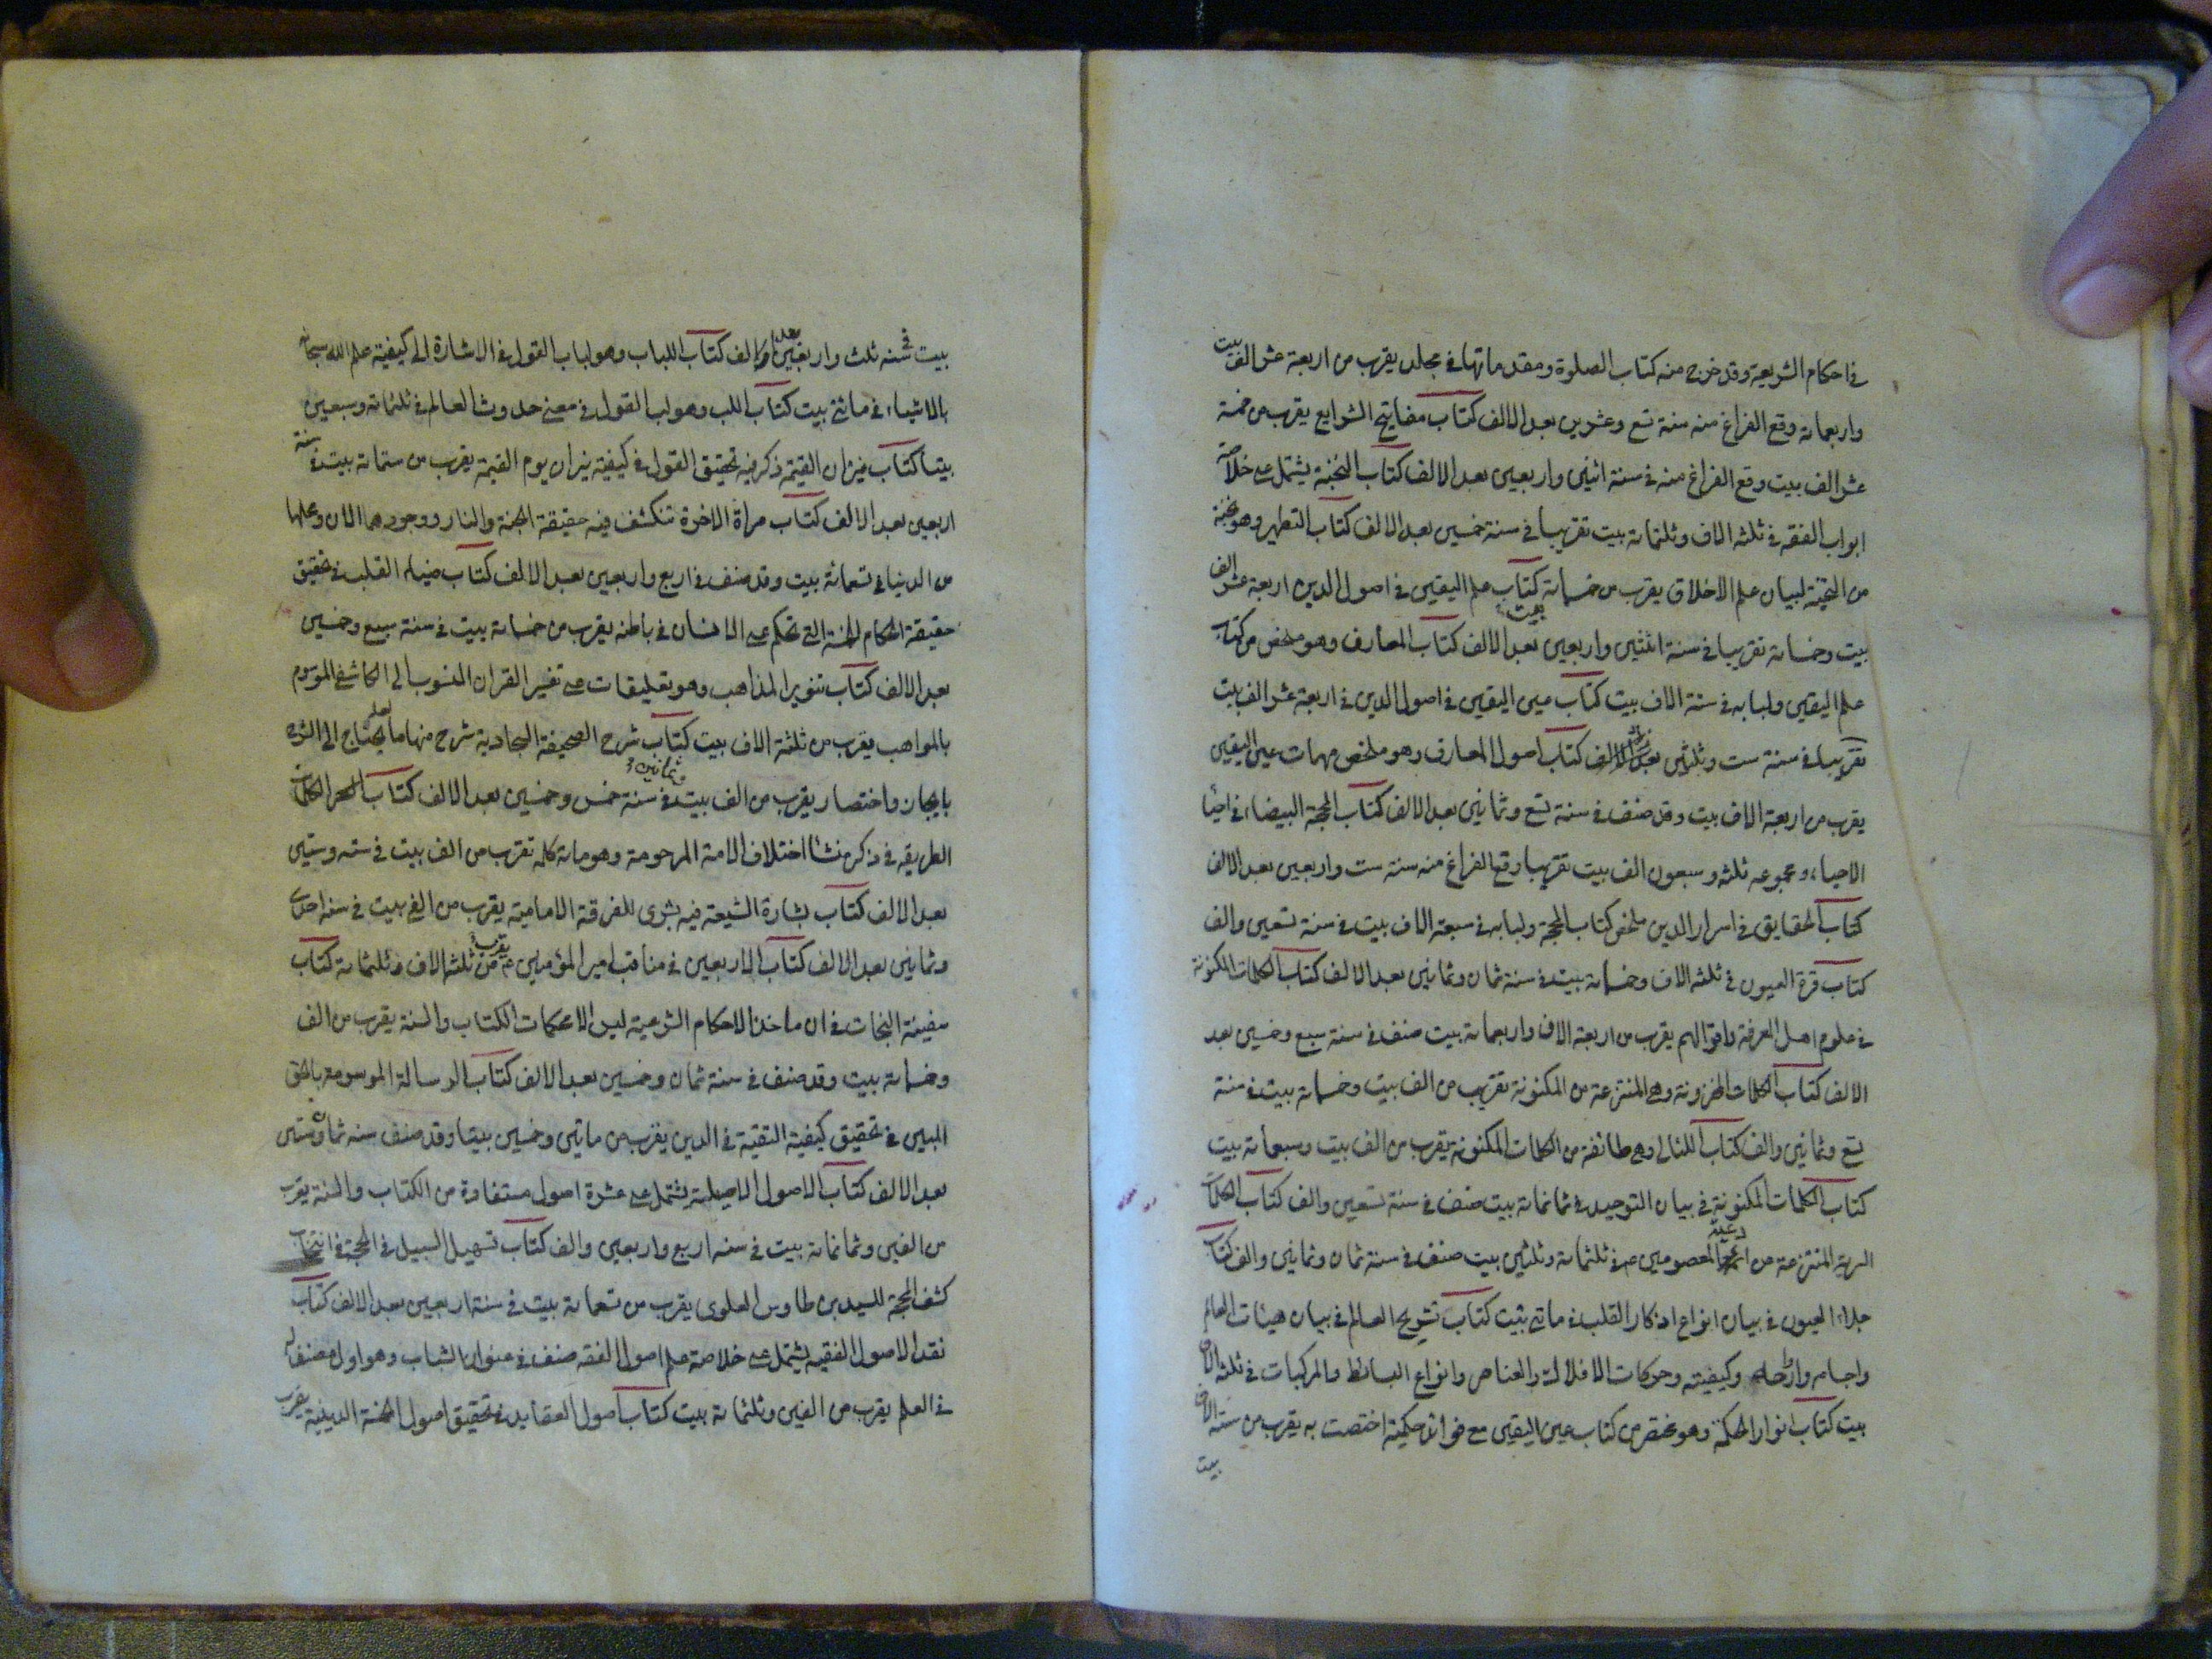 في احكام الشريعة وقد خرج منه كتاب الصلوة ومقدماتها في مجلد يقرب من اربعة عشر الف بيت
واربعمائة وقع الفراغ منه سنة تسع وعشرين بعد الالف كتاب مفاتيح الشرايع يقرب من خمسة
عشر الف بيت وقع الفراغ منه في سنة اثنين واربعين بعد الالف كتاب النخبة يشتمل على خلاصة
ابواب الفقه في ثلثه الاف وثلثمائة بيت تقريبا في سنة خمسين بعد الالف كتاب التطهير وهو نخبة
من النخبة لبيان علم الاخلاق يقرب من خمسمائة بيت كتاب علم اليقين في اصول الدين اربعة عشر الف
بيت وخمسمائة تقريبا في سنة اثنتين واربعين بعد الالف كتاب المعارف وهو ملخص من كتاب
علم اليقين ولبابه في ستة الاف بيت كتاب عين اليقين في اصول الدين في اربعة عشر الف بيت
تقريبا في سنة ست وثلثين بعد الالف كتاب اصول المعارف وهو ملخص مهمات عين اليقين
يقرب من اربعة الاف بيت وقد صنف في سنة تسع وثمانين بعد الالف كتاب المحجة البيضاء في احيا
الاحياء ومجموعه ثلثه وسبعون الف بيت تقريبا وقع الفراغ منه سنة ست واربعين بعد الالف
كتاب الحقايق في اسرار الدين ملخص كتاب المحجة ولبابه في سبعة الاف بيت في سنة تسعين والف
كتاب قرة العيون في ثلثه الاف وخمسمائة بيت في سنة ثمان وثمانين بعد الالف كتاب الكلمات المكنونة
في علوم اهل المعرفة واقوالهم يقرب من اربعة الاف واربعمائة بيت صنف في سنة سبع وخمسين بعد
الالف كتاب الكلمات المخزونة وهي المنتزعة من المكنونة تقريب من الف بيت وخمسمائة بيت في سنة
تسع وثمانين والف كتاب اللئالي وهي طائفة من الكلمات المكنونة يقرب من الف بيت وسبعمائة بيت
كتاب الكلمات المكنونة في بيان التوحيد في ثمانمائة بيت صنف في سنة تسعين والف كتاب الكلمات
السرية المنتزعة من ادعية المعصومين ع في ثلثمائة وثلثين بيت صنف في سنة ثمان وثمانين والف كتاب
جلاء العيون في بيان انواع اذكار القلب في ماتي بيت كتاب تشريح العالم في بيان هيئات العالم
واجسامه وارواحه وكيفيته وحركات الافلاك والعناصر وانواع البسائط والمركبات في ثلثه الاف
بيت كتاب انوار الحكمة وهو مختصر من كتاب عين اليقين مع فوائد حكمية اختصت به يقرب من ستة الاف
بيت
بيت في سنه ثلث واربعين بعد الالف كتاب اللباب وهو لباب القول في الاشارة الى كيفية علم الله سبحانه
بالاشياء في مائتي بيت كتاب اللب وهو لب القول في معنى حدوث العالم في ثلثمائة وسبعين
بيتا كتاب ميزان القيمة ذكر فيه تحقيق القول في كيفية ميزان يوم القيمة يقرب من ستمائة بيت في سنة
اربعين بعد الالف كتاب مراة الاخرة تنكشف فيه حقيقة الجنة والنار ووجودهما الان ومحلها
من الدنيا في تسعمائة بيت وقد صنف في اربع واربعين بعد الالف كتاب ضياء القلب في تحقيق
حقيقة الحكام الخمسة التي تحكم على الانسان في باطنه يقرب من خمسمائة بيت في سنة سبع وخمسين
بعد الالف كتاب تنوير المذاهب وهو تعليقات على تفسير القران المنسوب الى الكاشفي الموسوم
بالمواهب يقرب من ثلثة الاف بيت كتاب شرح الصحيفة السجادية شرح منها ما لعله يحتاج الى الشرح
بايجاز واختصار يقرب من الف بيت وثمانين في سنة خمس وخمسين بعد الالف كتاب
الطريقه في ذكر منشا اختلاف الامة المرحومة وهو مائة كلمه تقرب من الف بيت في سنه وستين
بعد الالف كتاب بشارة الشيعة فيه بشرى للفرقة الامامية يقرب من الفي بيت في سنه احدى
وثمانين بعد الالف كتاب الاربعين في مناقب امير المؤمنين ع يقرب من ثلثه الاف وثلثمائة كتاب
سفينة النجات في ان ماخذ الاحكام الشرعية ليس الا محكمات الكتاب والسنة يقرب من الف
وخمسمائة بيت وقد صنف في سنة ثمان وخمسين بعد الالف كتاب الرسالة الموسومة بالحق
المبين في تحقيق كيفية التفقه في الدين يقرب من ماتين وخمسين بيتا وقد صنف سنه ثمان وستين
بعد الالف كتاب الاصول الاصيلة يشتمل على عشرة اصول مستفادة من الكتاب والسنة يقرب
من الفين وثمانمائة بيت في سنه اربع واربعين والف كتاب تسهيل السبيل في الحجة في انتخاب
كشف المحجة للسيد بن طاوس العلوي يقرب من تسعمائة بيت في سنة اربعين بعد الالف كتاب
نقد الاصول الفقهيه يشتمل على خلاصة علم اصول الفقه صنف في عنوان الشباب وهو اول مصنفاته
في العلم يقرب من الفين وثلثمائة بيت كتاب اصول العقايد في تحقيق اصول الخمسة الدينية يقرب